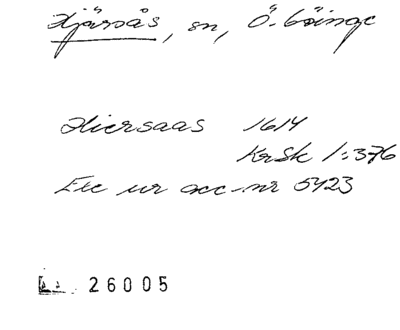 Hjärsås, sn, Ö. Göinge
Hiersaas 1614
KrSk 1:376
Exc ur acc.nr 5423
26005